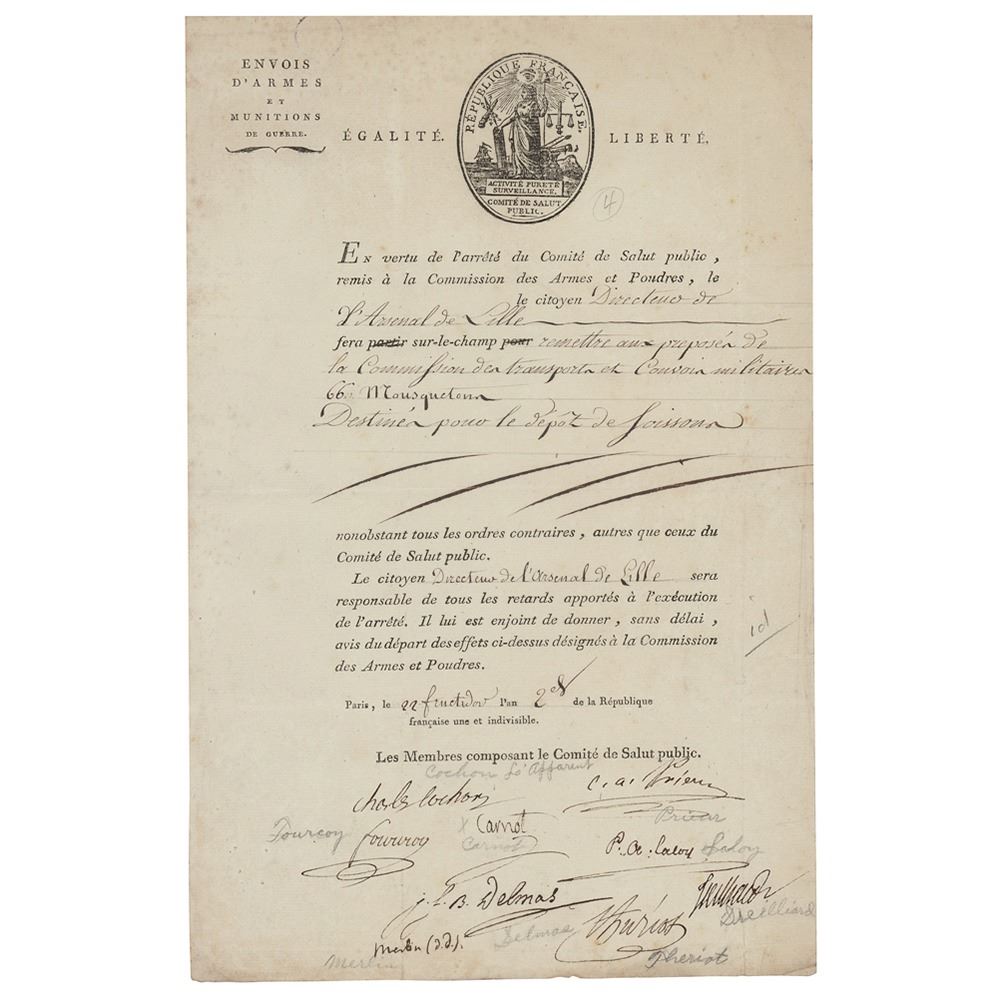 ENVOIS
D'ARMES
ET
MUNITIONS
DE GUERRE.
RÉPUBLIQUE FRANÇAISE.
ÉGALITÉ. LIBERTÉ.
ACTIVITÉ PURETÉ
SURVEILLANCE.
COMITÉ DE SALUT
PUBLIC.
4
EN vertu de l'arrêté du Comité de Salut public,
remis à la Commission des Armes et Poudres, le
le citoyen Directeur de
l'Arsenal de Lille
fera partir sur-le-champ pour remettre aux preposés de
la Commission des transports et Convois militaires
66 Mousquetons
Destinés pour le dépôt de Soissons
nonobstant tous les ordres contraires, autres que ceux du
Comité de Salut public.
Le citoyen Directeur de l'Arsenal de Lille sera
responsable de tous les retards apportés à l'exécution
de l'arrêté. Il lui est enjoint de donner, sans délai,
avis du départ des effets ci-dessus désignés à la Commission
des Armes et Poudres.
Paris, le 22 fructidor l'an 2e de la République
française une et indivisible.
Les Membres composant le Comité de Salut public.
Cochon L'Apparent
Charles Cochon C. a. Prieur
Prieur
Fourcoy fourcroy x Carnot
Carnot
P. A. Laloy Laloy
J. f. B. Delmas
Treilhard
Dreilliard
Merlin (d. d.). Delmas Thuriot
Merlin Theriot